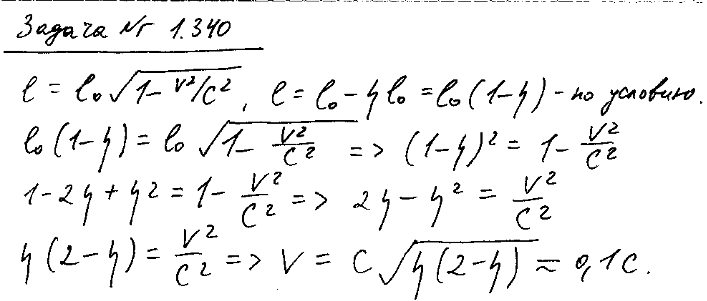 Задача № 1.340
l = l₀√(1 - V²/c²), l = l₀ - ηl₀ = l₀(1-η) - по условию.
l₀(1-η) = l₀√(1 - V²/c²) => (1-η)² = 1 - V²/c²
1 - 2η + η² = 1 - V²/c² => 2η - η² = V²/c²
η(2-η) = V²/c² => V = c√(η(2-η)) ≈ 0,1c.